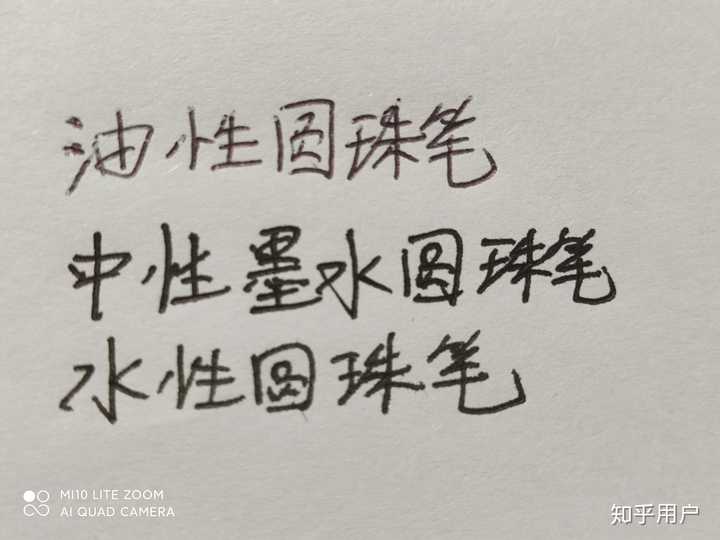 油性圆珠笔
中性墨水圆珠笔
水性圆珠笔
MI10 LITE ZOOM
AI QUAD CAMERA
知乎用户